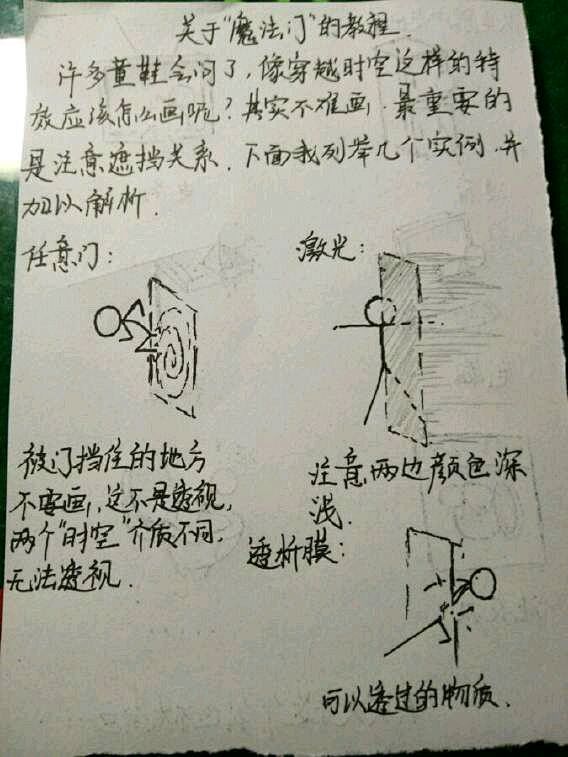 关于“魔法门”的教程.
许多童鞋会问了,像穿越时空这样的特
效应该怎么画呢?其实不难画.最重要的
是注意遮挡关系.下面我列举几个实例.并
加以解析.
任意门:
被门挡住的地方
不要画,这不是透视,
两个“时空”介质不同,
无法透视.
激光:
注意两边颜色深
浅.
透析膜:
可以透过的物质.